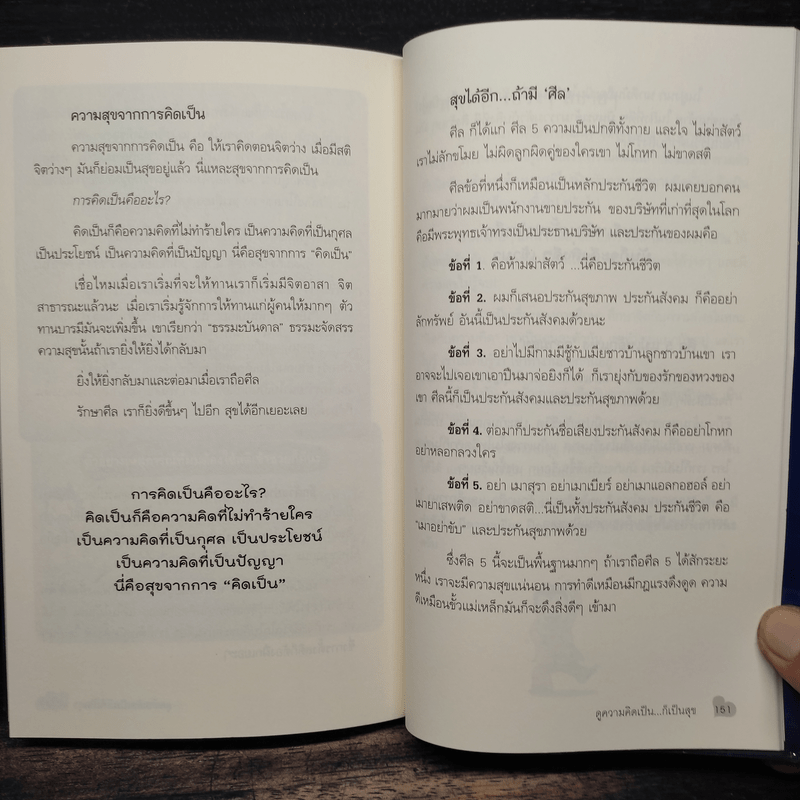 ความสุขจากการคิดเป็น
ความสุขจากการคิดเป็น คือ ให้เราคิดตอนจิตว่าง เมื่อมีสติ
จิตว่างๆ มันก็ย่อมเป็นสุขอยู่แล้ว นี่แหละสุขจากการคิดเป็น
การคิดเป็นคืออะไร?
คิดเป็นก็คือความคิดที่ไม่ทำร้ายใคร เป็นความคิดที่เป็นกุศล
เป็นประโยชน์ เป็นความคิดที่เป็นปัญญา นี่คือสุขจากการ “คิดเป็น”
เชื่อไหมเมื่อเราเริ่มที่จะให้ทานเราก็เริ่มมีจิตอาสา จิต
สาธารณะแล้วนะ เมื่อเราเริ่มรู้จักการให้ทานแก่ผู้คนให้มากๆ ตัว
ทานบารมีมันจะเพิ่มขึ้น เขาเรียกว่า “ธรรมะบันดาล” ธรรมะจัดสรร
ความสุขนั้นถ้าเรายิ่งให้ยิ่งได้กลับมา
ยิ่งให้ยิ่งกลับมาและต่อมาเมื่อเราถือศีล
รักษาศีล เราก็ยิ่งดีขึ้นๆ ไปอีก สุขได้อีกเยอะเลย
การคิดเป็นคืออะไร?
คิดเป็นก็คือความคิดที่ไม่ทำร้ายใคร
เป็นความคิดที่เป็นกุศล เป็นประโยชน์
เป็นความคิดที่เป็นปัญญา
นี่คือสุขจากการ “คิดเป็น”
สุขได้อีก...ถ้ามี ‘ศีล’
ศีล ก็ได้แก่ ศีล 5 ความเป็นปกติทั้งกาย และใจ ไม่ฆ่าสัตว์
เราไม่ลักขโมย ไม่ผิดลูกผิดคู่ของใครเขา ไม่โกหก ไม่ขาดสติ
ศีลข้อที่หนึ่งก็เหมือนเป็นหลักประกันชีวิต ผมเคยบอกคน
มากมายว่าผมเป็นพนักงานขายประกัน ของบริษัทที่เก่าที่สุดในโลก
คือมีพระพุทธเจ้าทรงเป็นประธานบริษัท และประกันของผมคือ
ข้อที่ 1. คือห้ามฆ่าสัตว์ ...นี่คือประกันชีวิต
ข้อที่ 2. ผมก็เสนอประกันสุขภาพ ประกันสังคม ก็คืออย่า
ลักทรัพย์ อันนี้เป็นประกันสังคมด้วยนะ
ข้อที่ 3. อย่าไปมีกามมีชู้กับเมียชาวบ้านลูกชาวบ้านเขา เรา
อาจจะไปเจอเขาเอาปืนมาจ่อยิงก็ได้ ก็เรายุ่งกับของรักของหวงของ
เขา ศีลนี้ก็เป็นประกันสังคมและประกันสุขภาพด้วย
ข้อที่ 4. ต่อมาก็ประกันชื่อเสียงประกันสังคม ก็คืออย่าโกหก
อย่าหลอกลวงใคร
ข้อที่ 5. อย่า เมาสุรา อย่าเมาเบียร์ อย่าเมาแอลกอฮอล์ อย่า
เมายาเสพติด อย่าขาดสติ...นี่เป็นทั้งประกันสังคม ประกันชีวิต คือ
“เมาอย่าขับ” และประกันสุขภาพด้วย
ซึ่งศีล 5 นี้จะเป็นพื้นฐานมากๆ ถ้าเราถือศีล 5 ได้สักระยะ
หนึ่ง เราจะมีความสุขแน่นอน การทำดีเหมือนมีกฎแรงดึงดูด ความ
ดีเหมือนขั้วแม่เหล็กมันก็จะดึงสิ่งดีๆ เข้ามา
ดูความคิดเป็น...ก็เป็นสุข 151